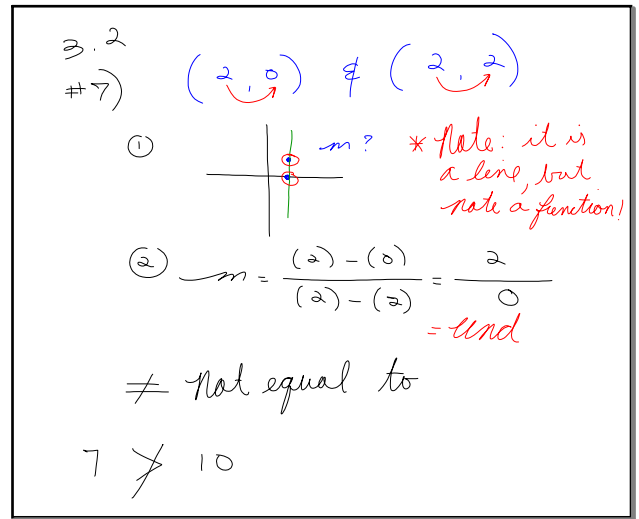 3.2
#7) (2, 0) & (2, 2)
① m?
* Note: it is
a line, but
note a function!
② m = (2) - (0) / (2) - (2) = 2 / 0
= und
≠ not equal to
7 ≯ 10